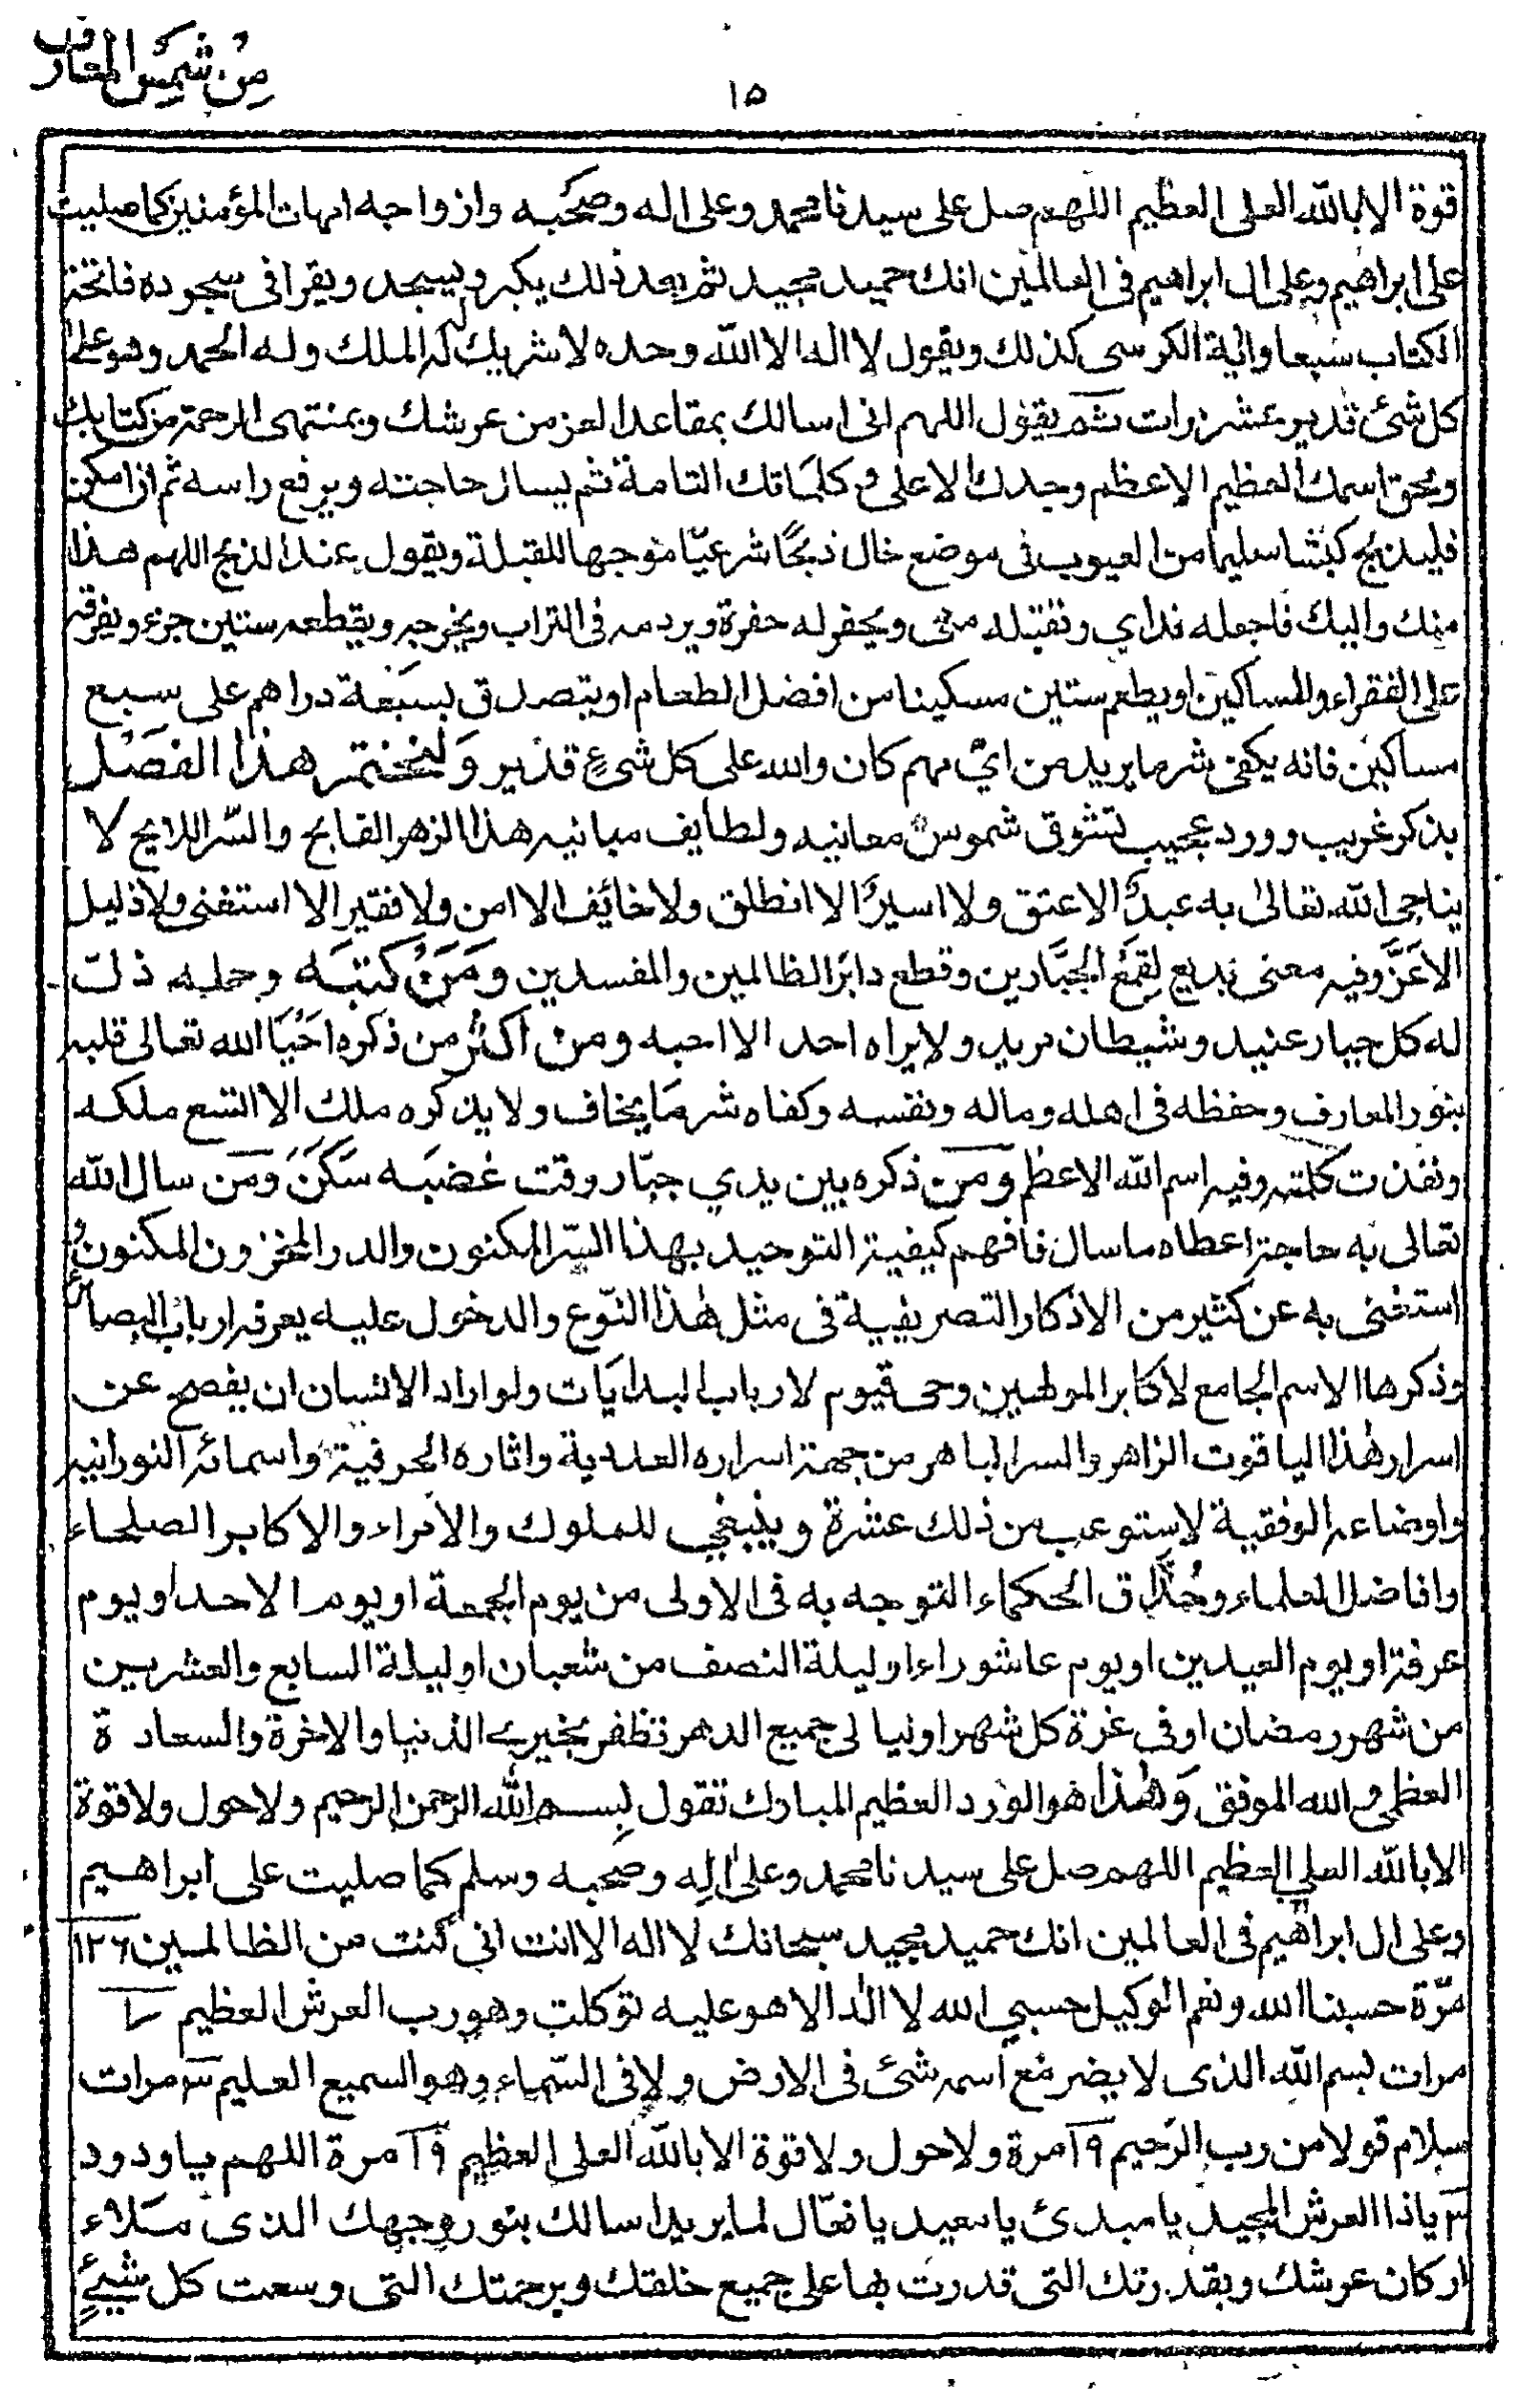 من شمس المعارف
١٥
قوة الا بالله العلى العظيم اللهم صل على سيدنا محمد وعلى اله وصحبه وازواجه امهات المؤمنين كما صليت
على ابراهيم وعلى ال ابراهيم فى العالمين انك حميد مجيد ثم بعد ذلك يكبر ويسجد ويقرا فى سجوده فاتحة
الكتاب سبعا واية الكرسى كذلك ويقول لا اله الا الله وحده لا شريك له له الملك وله الحمد وهو على
كل شئ قدير عشر مرات ثم يقول اللهم انى اسالك بمقاعد العز من عرشك وبمنتهى الرحمة من كتابك
وبحق اسمك العظيم الاعظم وجدك الاعلى وكلماتك التامة ثم يسال حاجته ويرفع راسه ثم ان امكن
فليذبح كبشا سليما من العيوب فى موضع خال ذبحًا شرعيّا موجها للقبلة ويقول عند الذبح اللهم هذا
منك واليك فاجعله فداي وتقبله منى ويحفر له حفرة ويردمه فى التراب ويخرجه ويقطعه ستين جزء ويفرقه
على الفقراء والمساكين او يطعم ستين مسكينا من افضل الطعام او يتصدق بسبعة دراهم على سبع
مساكين فانه يكفى شر ما يريد من ايّ مهم كان والله على كل شئٍ قدير وَلنختم هذا الفصل
بذكر غريب وورد عجيب تشوقى شموس معانيه ولطايف مبانيه هذا الزهر الفايح والسّر اللايح لا
يناجى الله تعالى به عبدٌ الا عتق ولا اسيرًا الا انطلق ولا خائف الا امن ولا فقير الا استغنى ولا ذليل
الا عَزَّ وفيه معنى بديع لِقمع الجبَّارين وقطع دابر الظالمين والمفسدين وَمَنْ كتبَه وحمله ذلت
له كل جبار عنيد وشيطان مريد ولا يراه احد الا احبه ومن اكثر من ذكره احْيَا الله تعالى قلبه
بنور المعارف وحفظه فى اهله وماله ونفسه وكفاه شر ما يخاف ولا يذكره ملك الا اتسع ملكه
ونفذت كلمته وفيه اسم الله الاعظم وَمن ذكره بين يدي جبّار وقت غضبَه سَكَنَ وَمَن سال الله
تعالى به حاجة اعطاه ما سال فافهم كيفية التوحيد بهذا السّر المكنون والدر المخزون المكنون
استغنى به عن كثير من الاذكار التصريفية فى مثل هٰذا النّوع والدخول عليه يعرفه ارباب البصائر
وذكرها الاسم الجامع لاكابر المولهين وحى قيوم لارباب البدايَات ولو اراد الانسان ان يفصح عن
اسرار هٰذا الياقوت الزاهر والسر الباهر من جهة اسراره العددية واثاره الحرفية واسمائه النورانيه
واوضاعه الوفقية لاستوعب من ذلك عشرة وينبغي للملوك والامراء والاكابر الصلحاء
وافاضل العلماء وحُذّاق الحكماء التوجه به فى الاولى من يوم الجمعة او يوم الاحد او يوم
عرفة او يوم العيدين او يوم عاشوراء او ليلة النصف من شعبان او ليلة السابع والعشرين
من شهر رمضان او فى غرة كل شهر او ليالى جميع الدهر تظفر بخيري الدنيا والاخرة والسعادة
العظمى والله الموفق وَهٰذا هو الورد العظيم المبارك تقول بِسم الله الرحمن الرحيم ولا حول ولا قوة
الا بالله العلي العظيم اللهم صل على سيدنا محمد وعلى اٰلِه وصحبه وسلم كما صليت على ابراهيم
وعلى ال ابراهيم فى العالمين انك حميد مجيد سبحانك لا اله الا انت اني كنت من الظالمين ١٢٦
مرّة حسبنا الله ونعم الوكيل حسبي الله لا الٰه الا هو عليه توكلت وهو رب العرش العظيم
مرات بسم الله الذى لا يضر مَع اسمه شئ فى الارض ولا فى السّماء وهو السميع العليم ٣ مرات
سلام قولا من رب الرّحيم ١٩ مرة ولا حول ولا قوة الا بالله العلى العظيم ١٩ مرة اللهم يا ودود
٣ ياذا العرش المجيد يا مبدئ يا معيد يا فعّال لما يريد اسالك بنور وجهك الذى مَلاء
اركان عرشك وبقدرتك التى قدرت بها على جميع خلقك وبرحمتك التى وسعت كل شيئٍ